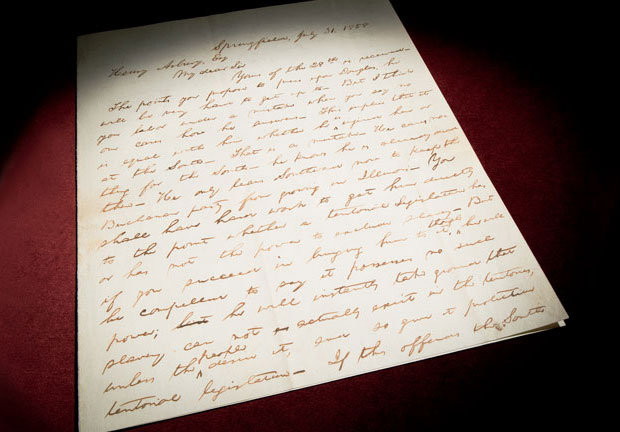 Springfield, July 31. 1858
Henry Asbury, Esq
My dear Sir
Yours of the 28th is received.
The points you propose to press upon Douglas, he
will be very hard to get up to. But I think
you labor under a mistake when you say no
one cares how he answers. This implies that it
is equal with him whether he is injured here or
at the South. That is a mistake. He cares no-
thing for the South— he knows he is already dead
there— He only leans Southward now to keep the
Buchanan party from growing in Illinois— You
shall have hard work to get him directly
to the point whether a territorial Legislature has
or has not the power to exclude slavery— But
if you succeed in bringing him to it, though he will
be compelled to say it possesses no such
power; he will instantly take ground that
slavery can not actually exist in the territories,
unless the people desire it, and so give it protective
territorial legislation— If this offends the South